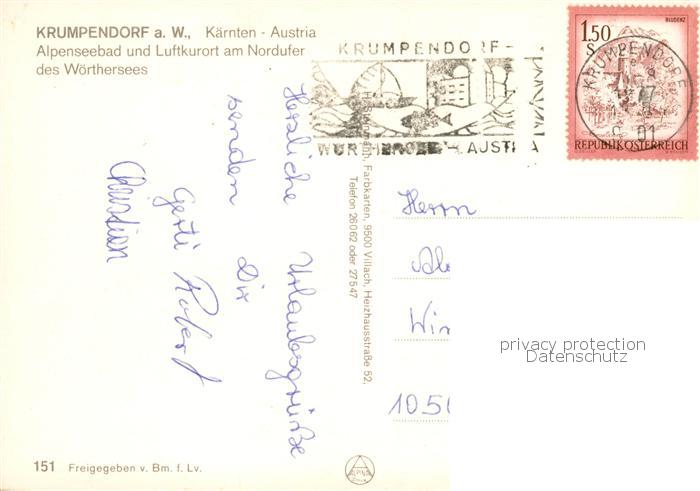 KRUMPENDORF a. W., Kärnten - Austria
Alpenseebad und Luftkurort am Nordufer
des Wörthersees
KRUMPENDORF -
WÖRTHERSEE - AUSTRIA
BLUDENZ
1.50
S
KRUMPENDORF
9 01
REPUBLIK ÖSTERREICH
Herzliche Urlaubsgrüße
senden Dir
Gerti Robert
Christian
Farbkarten, 9500 Villach, Heizhausstraße 52,
Telefon 26062 oder 27547
Herrn
privacy protection
Datenschutz
105
151 Freigegeben v. Bm. f. Lv.
ALPINA